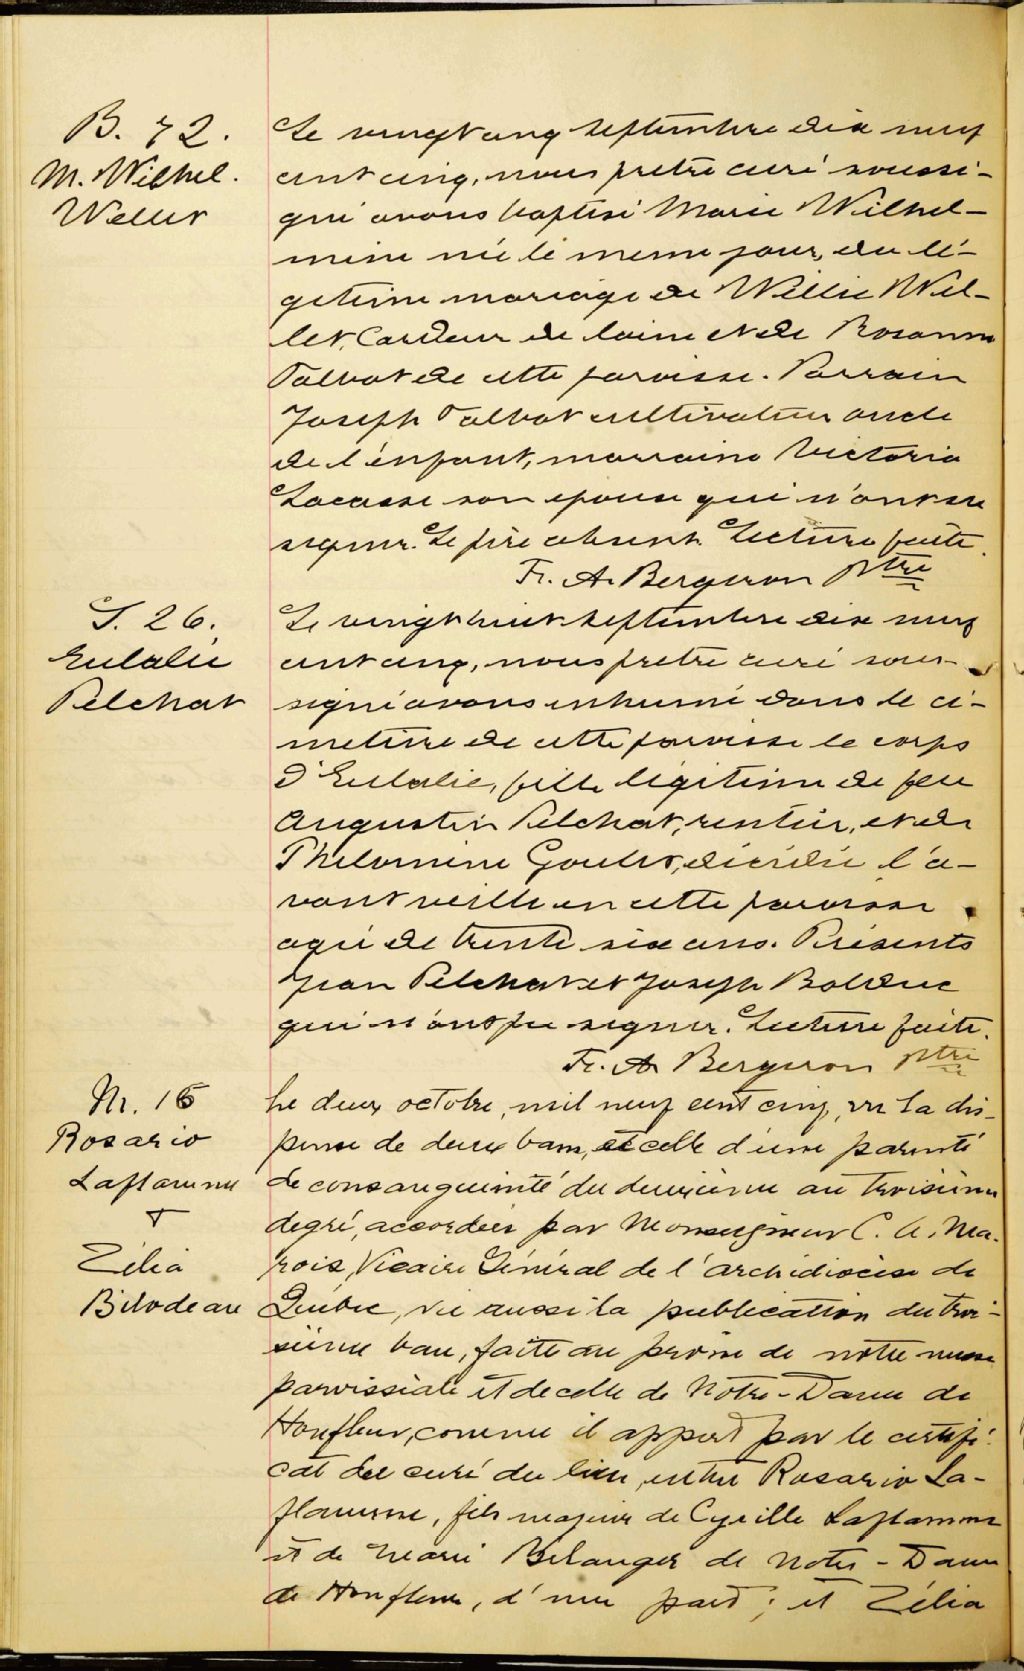 B. 72.
M. Wilhel.
Willet
Le vingt cinq septembre dix neuf
cent cinq, nous pretre curé soussi-
gné avons baptisé Marie Wilhel-
mine née le meme jour, du lé-
gitime mariage de Willie Wil-
let, Cardeur de laine et de Rosanna
Talbot de cette paroisse. Parrain
Joseph Talbot cultivateur oncle
de l'enfant, marraine Victoria
Lacasse son epouse qui n'ont su
signer. Le père absent. Lecture faite.
Fr. A. Bergeron Ptre
S. 26.
Eulalie
Pelchat
Le vingt huit septembre dix neuf
cent cinq, nous pretre curé sous-
signé avons inhumé dans le ci-
metiere de cette paroisse le corps
d'Eulalie, fille légitime de feu
Augustin Pelchat, rentier, et de
Philomène Goulet, décédée l'a-
vant veille en cette paroisse
agée de trente six ans. Présents
Jean Pelchat et Joseph Bolduc
qui n'ont pu signer. Lecture faite.
Fr. A. Bergeron Ptre
M. 16
Rosario
Laflamme
&
Zélia
Bilodeau
Le deux octobre, mil neuf cent cinq, vu la dis-
pense de deux bans, et celle d'une parenté
de consanguinité du deuxième au troisième
degré, accordées par Monseigneur C. A. Ma-
rois, Vicaire Général de l'archidiocèse de
Québec, vu aussi la publication du troi-
sième ban, faite au prône de notre messe
paroissiale et de celle de Notre-Dame de
Honfleur, comme il appert par le certifi-
cat du curé du lieu, entre Rosario La-
flamme, fils majeur de Cyrille Laflamme
et de Marie Belanger de Notre-Dame
de Honfleur, d'une part; et Zélia